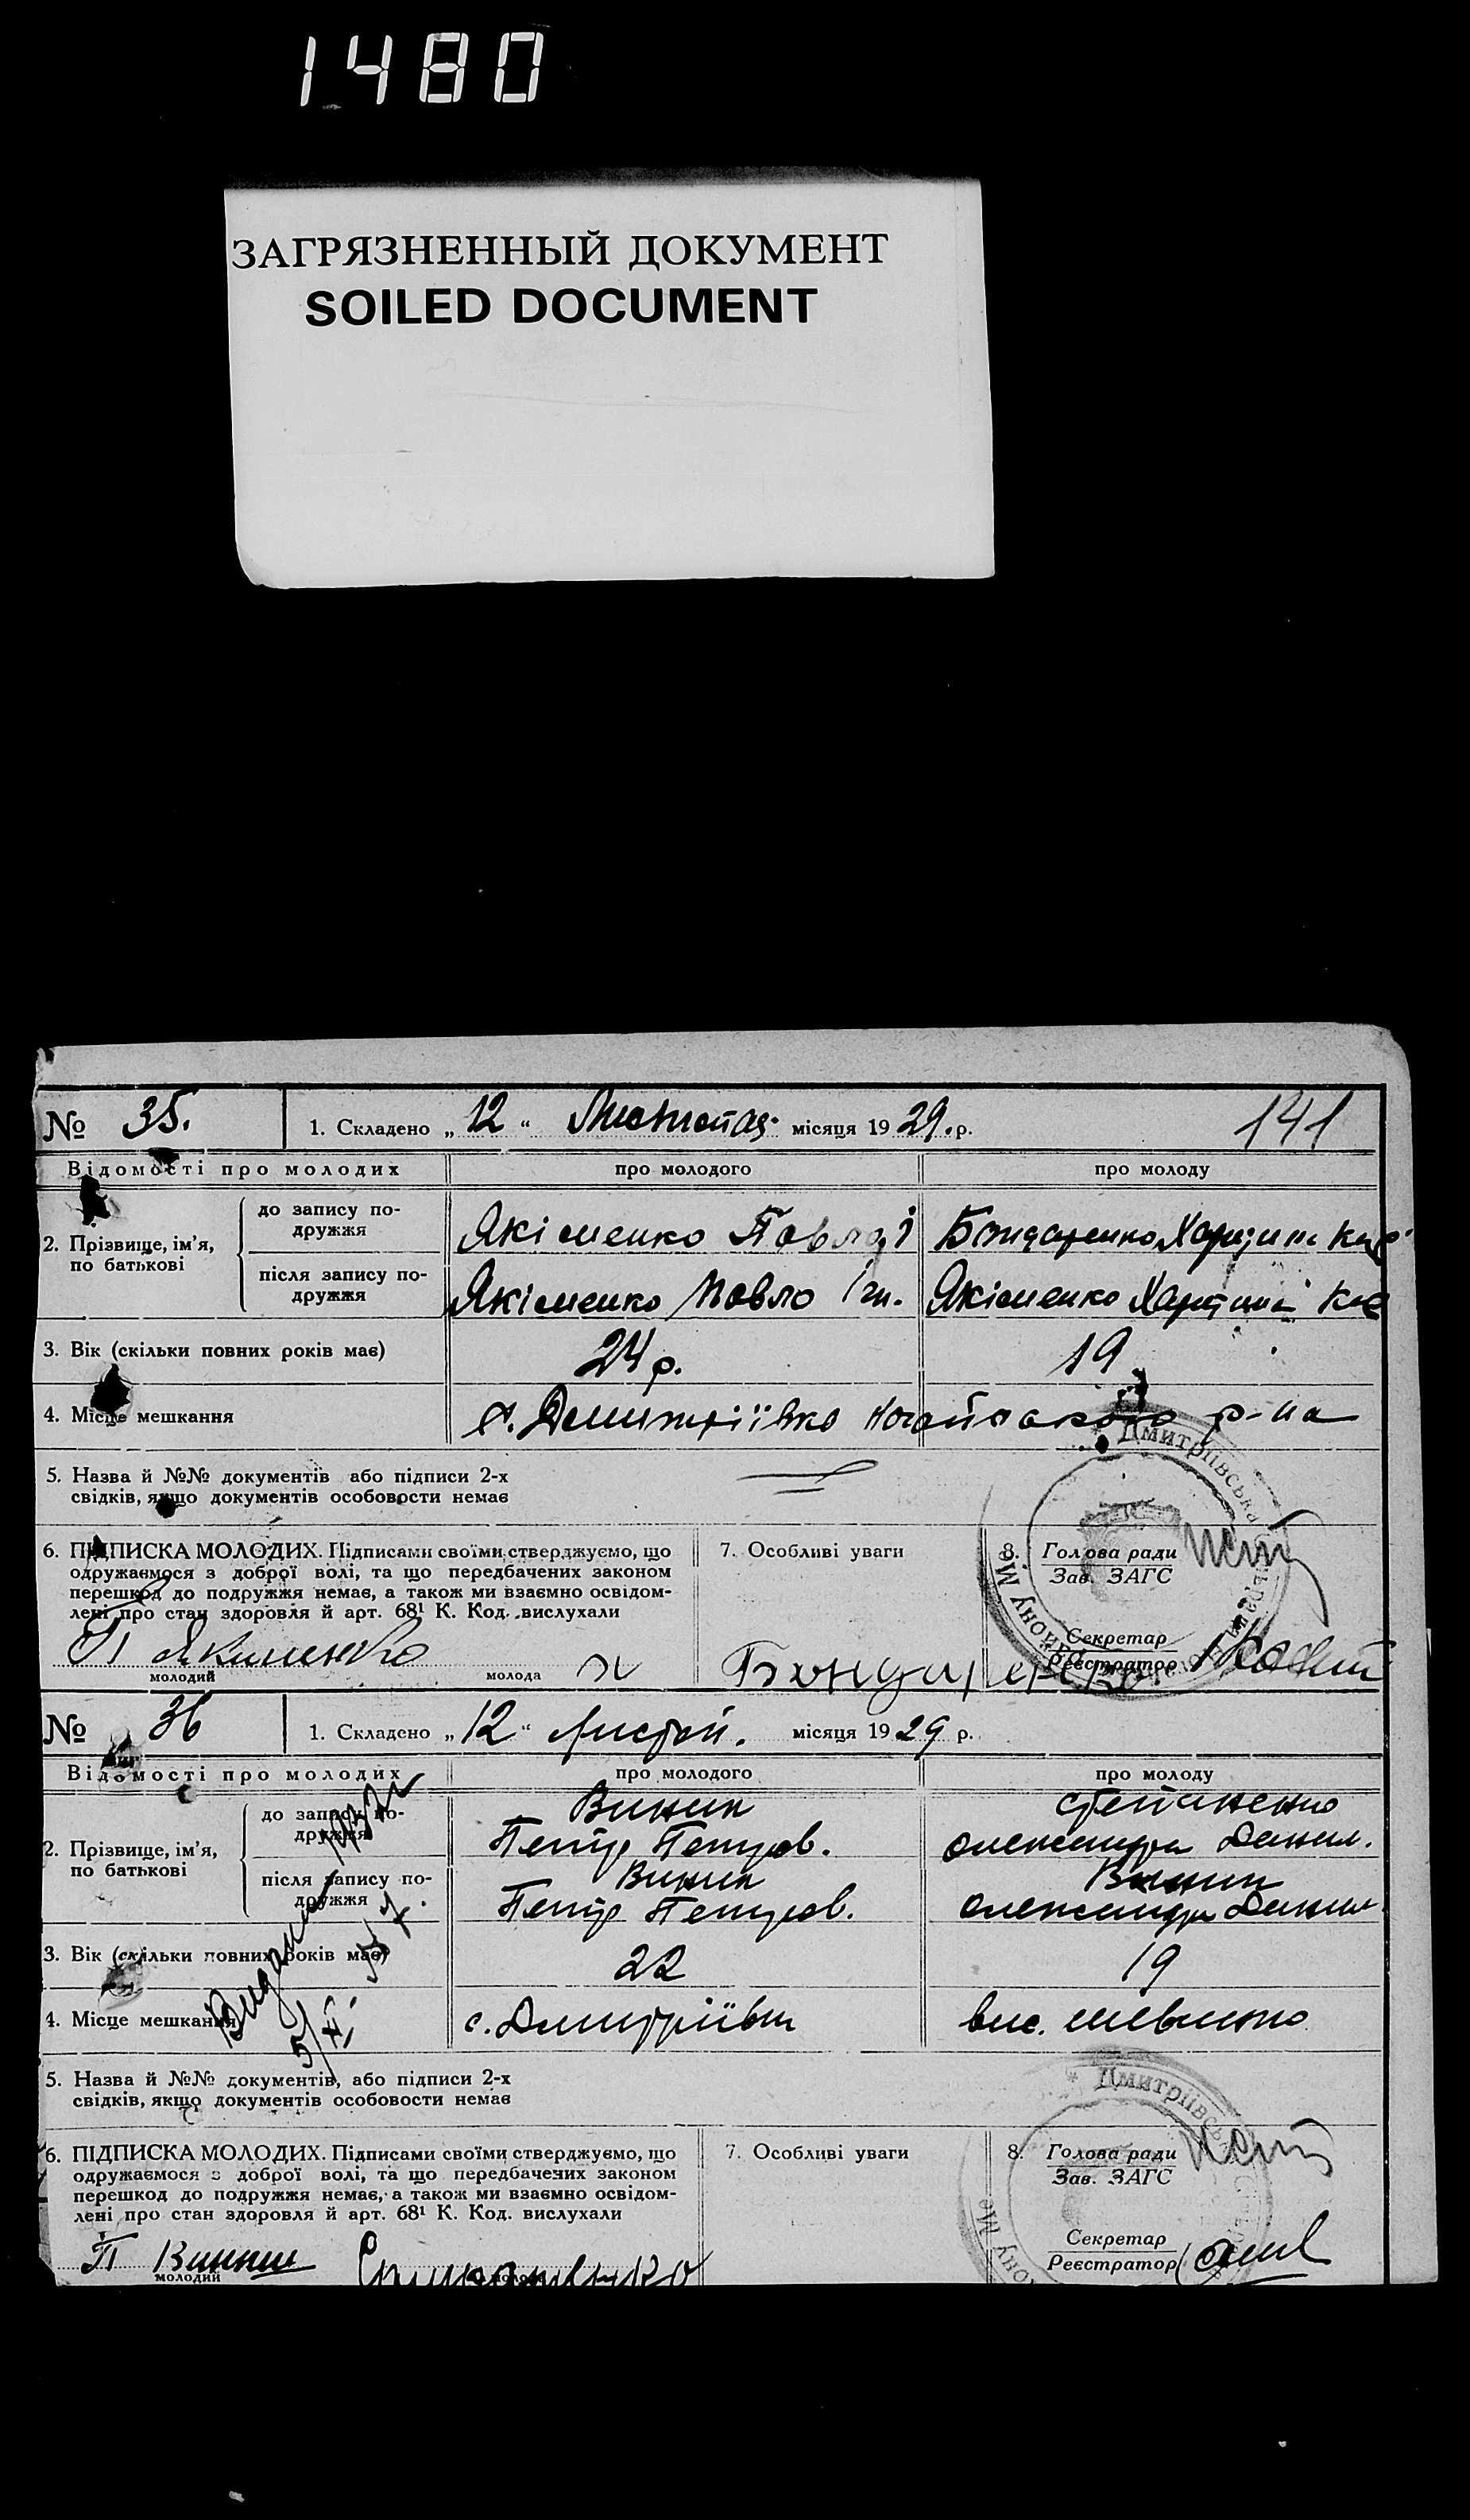 1480
ЗАГРЯЗНЕННЫЙ ДОКУМЕНТ
SOILED DOCUMENT
№ 35. 1. Складено „12“ Листопад. місяця 1929.р. 141
Відомості про молодих про молодого про молоду
2. Прізвище, ім’я, по батькові
до запису по-
дружжя
Якіменко Павло І Бондаренко
після запису по-
дружжя
Якіменко Павло Гн. Якіменко
3. Вік (скільки повних років має) 24 р. 19
4. Місце мешкання с. Дмитріївка р-на
5. Назва й №№ документів або підписи 2-х
свідків, якщо документів особовости немає
6. ПІДПИСКА МОЛОДИХ. Підписами своїми стверджуємо, що
одружаємося з доброї волі, та що передбачених законом
перешкод до подружжя немає, а також ми взаємно освідом-
лені про стан здоровля й арт. 68¹ К. Код. вислухали
7. Особливі уваги
8. Голова ради
Зав. ЗАГС
Секретар
Реєстратор
Дмитріївська
П Якименко Х Бондаренко
молодий молода
№ 36 1. Складено „12“ листоп. місяця 1929 р.
Відомості про молодих про молодого про молоду
2. Прізвище, ім’я, по батькові
до запису по-
дружжя
Виник Степаненко
Петр Петров. Олександра Данил.
після запису по-
дружжя
Виник Виник
Петр Петров. Олександра Данил.
3. Вік (скільки повних років має) 22 19
4. Місце мешкання с. Дмитріївка вис. Шевченко
5. Назва й №№ документів, або підписи 2-х
свідків, якщо документів особовости немає
6. ПІДПИСКА МОЛОДИХ. Підписами своїми стверджуємо, що
одружаємося з доброї волі, та що передбачених законом
перешкод до подружжя немає, а також ми взаємно освідом-
лені про стан здоровля й арт. 68¹ К. Код. вислухали
7. Особливі уваги
8. Голова ради
Зав. ЗАГС
Секретар
Реєстратор
П Виник
молодий